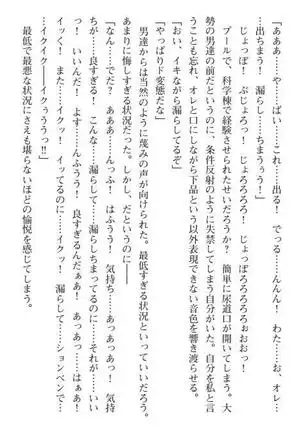 「あぁぁ……や……ばい……これ……出る！　でっる……んんん！　わた……お、オレ
……出ちまう！　漏らし……ちまぅぅ！」
じょっぽ！　ぷじょろっ！　じょろろろろ！　じょっぽろろろろぉおぉっ！
プールで、科学棟で経験させられたせいだろうか？　簡単に尿道口が開いてしまう。大
勢の男達の前だというのに、条件反射のように失禁してしまう自分がいた。自分を私と言
うことも忘れ、オレと口にしながら下品という以外表現できない音色を響き渡らせる。
「おい、イキながら漏らしてるぞ」
「やっぱりド変態だな」
男達からは当然のように蔑みの声が向けられた。最低すぎる状況といっていいだろう。
あまりに悔しすぎる状況だった。しかし、だというのに――
「なん……でだ？　あああ……んっふ！　はううう！　気持ち……あっあっあっ！　気持
ちが……良すぎる！　こんな……漏らし……漏らしちまってるのに……それが……いい
だなんて……んひいい！　よす……んふうう！　良すぎるんだぁぁ！　あっあっ……はぁぁ！
イッく！　また……イクっ！　イッてるのに……イクッ！　漏らして……ションベンで……
イクイクイクーーイクぅううっ!!」
最低で最悪な状況にさえも堪らないほどの愉悦を感じてしまう。